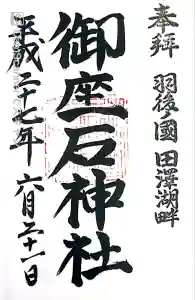 奉拝
羽後ノ國 田澤湖畔
御座石神社
平成二十七年 六月二十一日